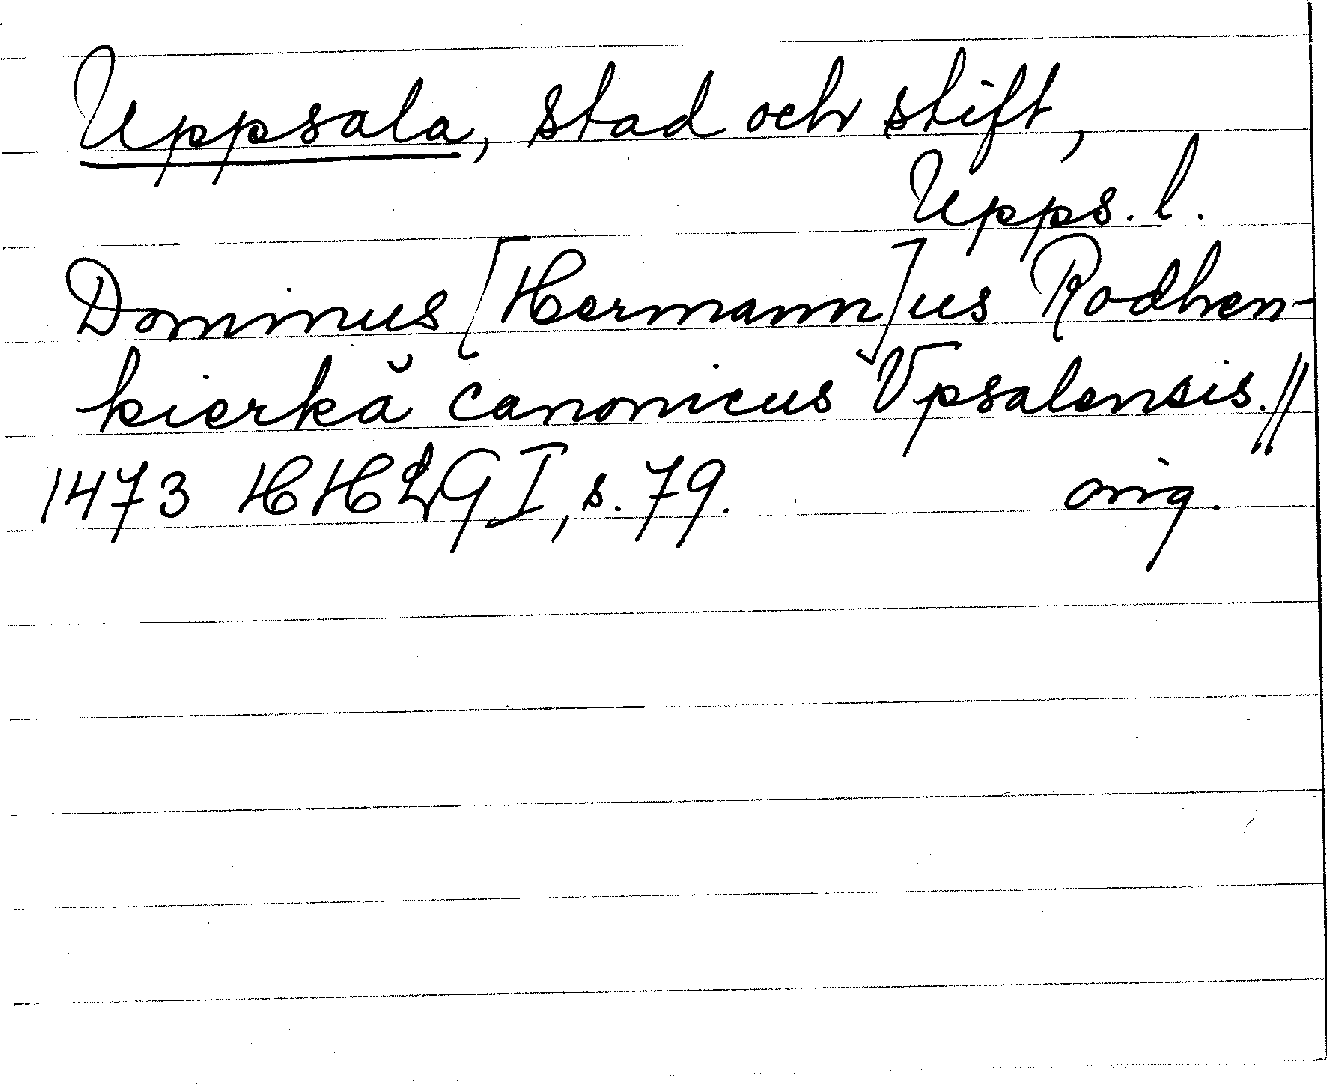 Uppsala, stad och stift,
Upps. l.
Dominus [Hermann]us Rodhen-
kierkă canonicus Vpsalensis.//
1473 HHLG I, s. 79. orig.